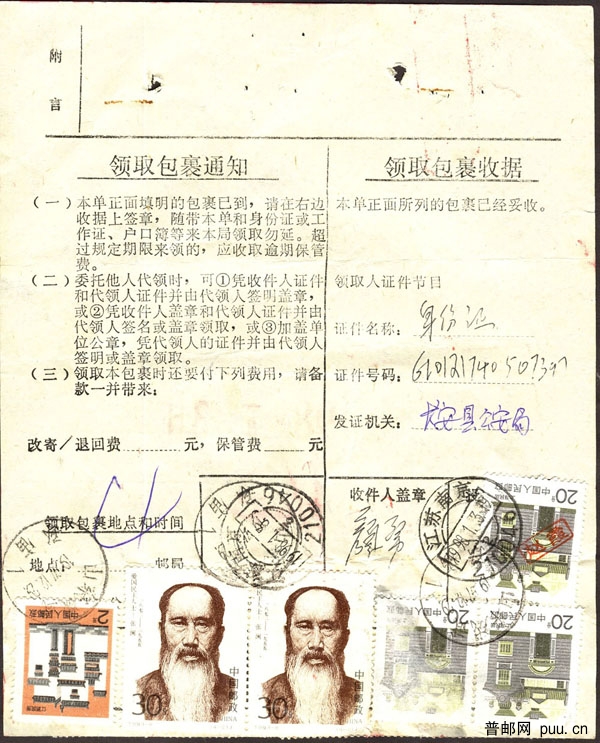 附
言
领取包裹通知
(一)本单正面填明的包裹已到，请在右边
收据上签章，随带本单和身份证或工
作证、户口簿等来本局领取勿延。超
过规定期限来领的，应收取逾期保管
费。
(二)委托他人代领时，可①凭收件人证件
和代领人证件并由代领人签明盖章，
或②凭收件人盖章和代领人证件并由
代领人签名或盖章领取，或③加盖单
位公章，凭代领人的证件并由代领人
签明或盖章领取。
(三)领取本包裹时还要付下列费用，请备
款一并带来：
改寄／退回费 元，保管费 元
领取包裹地点和时间
地点： 邮局
领取包裹收据
本单正面所列的包裹已经妥收。
领取人证件节目
证件名称： 身份证
证件号码：
发证机关： 县公安局
收件人盖章
江苏南京
2700A6
2分
中国人民邮政
江苏民居
30分
张澜
中国邮政
CHINA
30分
张澜
中国邮政
CHINA
20分
中国人民邮政
20分
中国人民邮政
20分
中国人民邮政
普邮网 puu.cn